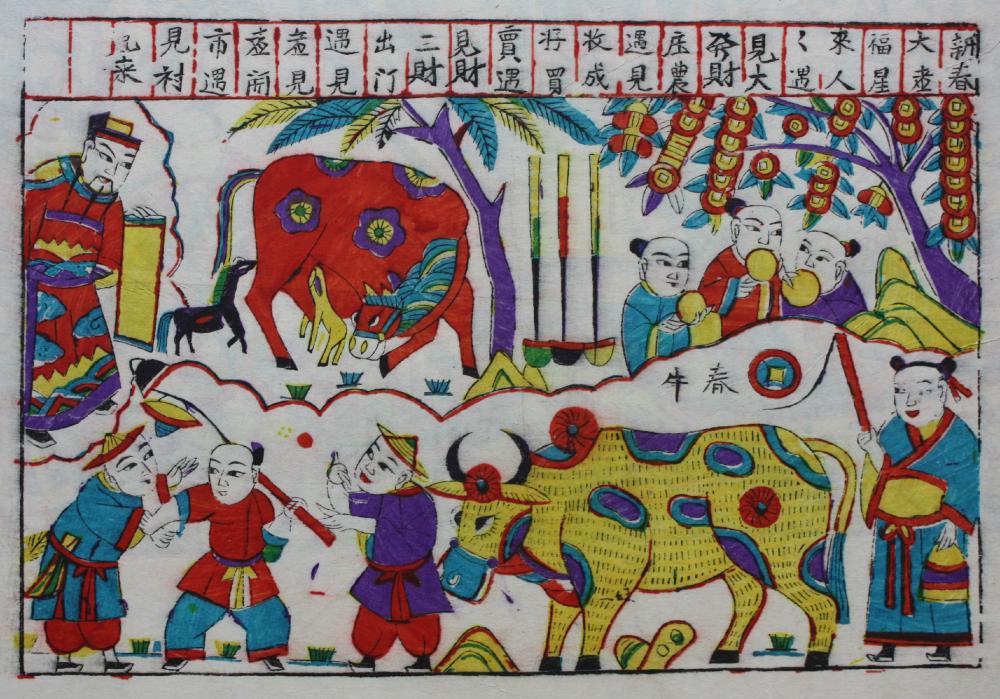 新春
大走
福星
來人
〻遇
見大
發財
庄農
遇見
收成
好買
賣遇
見財
三財
出门
遇見
見
開
市遇
見村
來
春牛